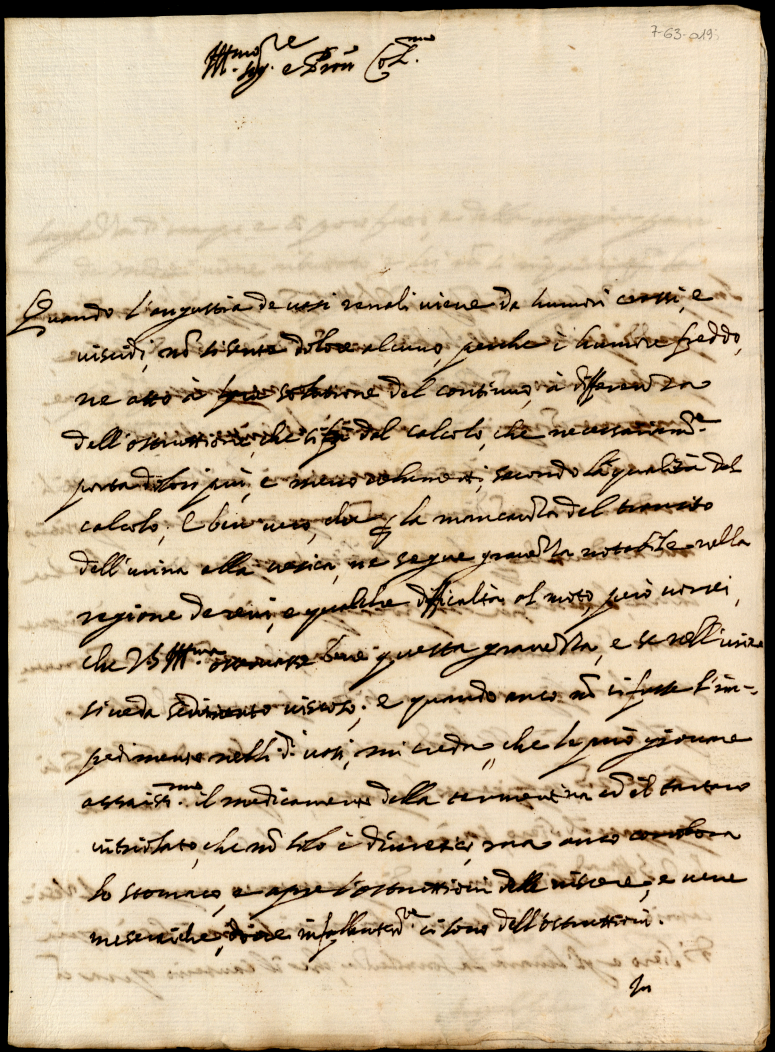 7-63-a19
Ill.mo Sig.re e Pron Col.mo
Quando l'angustia de vasi renali viene da humori crassi, e
viscidi, nõ si sente dolore alcuno, perche è humore freddo,
ne atto à solutione del continuo, à differenza
dell'ostruttione, che si fà dal calcolo, che necessariam.te
porta dolori più, e meno vehementi, secondo la qualità del
calcolo; È ben vero, che p la mancanza del transito
dell'urina alla vesica, ne segue gravezza notabile nella
regione de reni, e qualche difficaltà al moto però vorrei,
che VS Ill.ma osservasse bene questa gravezza, e se nell'urine
si veda sedimento viscoso; e quando anco nõ ci fusse l'im-
pedimento nelli d.i vasi, mi creda, che le può giovare
assaiss.mo il medicamento della termentina ed il tartaro
vitriolato, che nõ solo è diuretico, ma anco corrobora
lo stomaco, e apre l'ostruttioni delle viscere, e vene
meseraiche, dove infallantem.te ci sono dell'ostruttioni.
In